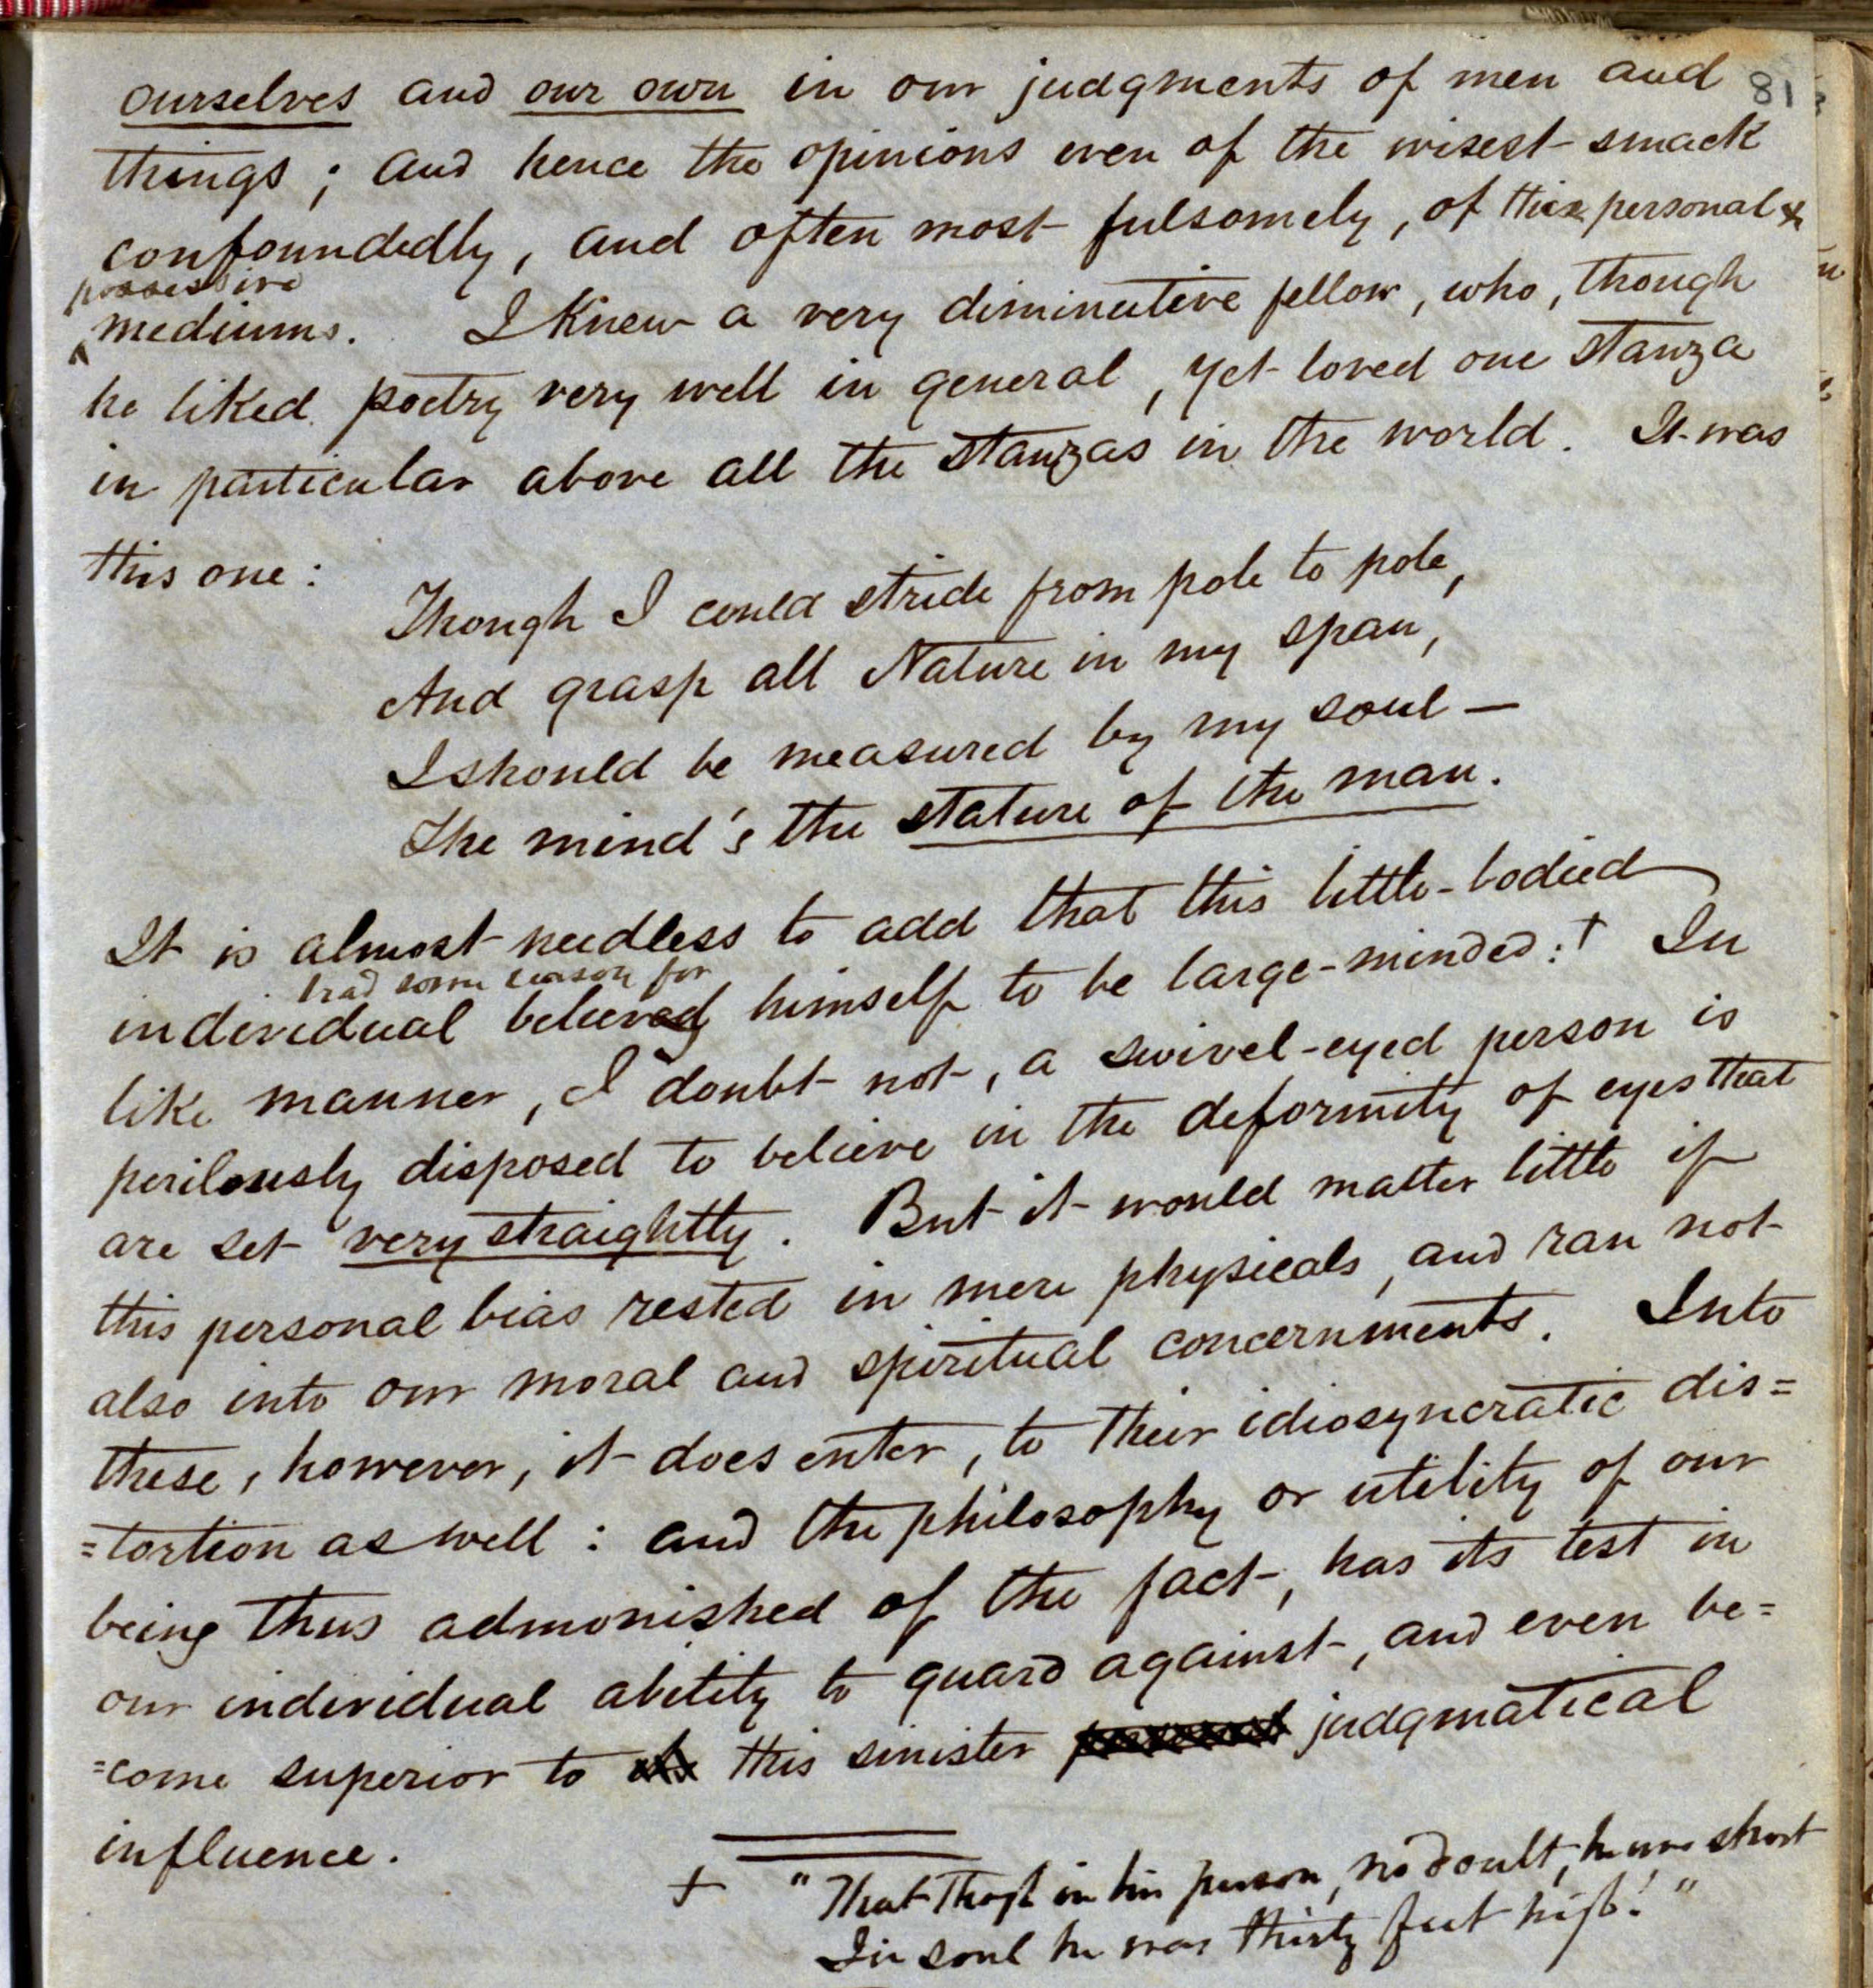 81
ourselves and our own in our judgments of men and
things; and hence the opinions even of the wisest smack
confoundedly, and often most fulsomely, of personal &
possessive
mediums. I knew a very diminutive fellow, who, though
he liked poetry very well in general, yet loved one stanza
in particular above all the stanzas in the world. It was
this one:
Though I could stride from pole to pole,
And grasp all Nature in my span,
I should be measured by my soul —
The mind's the stature of the man.
It is almost needless to add that this little-bodied
had some reason for
individual believing himself to be large-minded:† In
like manner, I doubt not, a swivel-eyed person is
perilously disposed to believe in the deformity of eyes that
are set very straightly. But it would matter little if
this personal bias rested in mere physicals, and ran not
also into our moral and spiritual concernments. Into
these, however, it does enter, to their idiosyncratic dis=
=tortion as well: and the philosophy or utility of our
being thus admonished of the fact, has its test in
our individual ability to guard against, and even be=
=come superior to this sinister judgmatical
influence.
† "That thogh in his person, no doubt, he was short
In soul he was thirty feet high!"